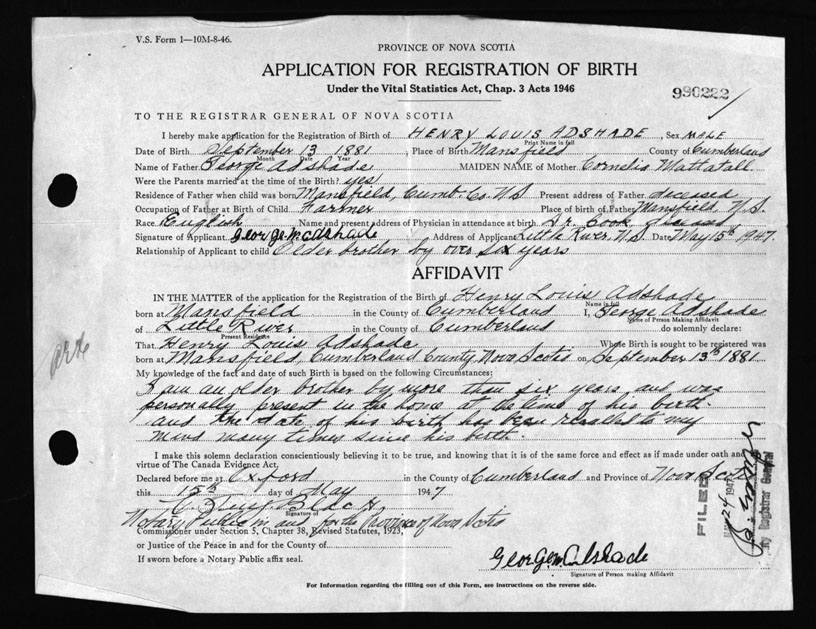 V.S. Form 1—10M-8-46.
PROVINCE OF NOVA SCOTIA
APPLICATION FOR REGISTRATION OF BIRTH
Under the Vital Statistics Act, Chap. 3 Acts 1946
990222
TO THE REGISTRAR GENERAL OF NOVA SCOTIA
I hereby make application for the Registration of Birth of HENRY LOUIS ADSHADE, Sex MALE
Print Name in full
Date of Birth September 13 1881, Place of Birth Mansfield County of Cumberland
Month Date Year
Name of Father George Adshade MAIDEN NAME of Mother Cornelia Mattatall
Were the Parents married at the time of the Birth? yes
Residence of Father when child was born Mansfield, Cumb. Co. N.S Present address of Father deceased
Occupation of Father at Birth of Child Farmer Place of birth of Father Mansfield, N.S.
Race English Name and present address of Physician in attendance at birth Dr. Cook,
Signature of Applicant George McAdshade Address of Applicant Little River, N.S Date May 15th 1947.
Relationship of Applicant to child Older brother by over six years
AFFIDAVIT
IN THE MATTER of the application for the Registration of the Birth of Henry Louis Adshade
Name in full
born at Mansfield in the County of Cumberland I, George Adshade
Name of Person Making Affidavit
of Little River in the County of Cumberland do solemnly declare:
Present Residence
That Henry Louis Adshade Whose Birth is sought to be registered was
born at Mansfield, Cumberland County, Nova Scotia on September 13th 1881.
My knowledge of the fact and date of such Birth is based on the following Circumstances:
I am an older brother by more than six years and was
personally present in the home at the time of his birth.
and the date of his birth has been recalled to my
mind many times since his birth.
I make this solemn declaration conscientiously believing it to be true, and knowing that it is of the same force and effect as if made under oath and
virtue of The Canada Evidence Act.
Declared before me at Oxford in the County of Cumberland and Province of Nova Scotia
this 15th day of May 1947
Black
Signature of
Notary Public in and for the Province of Nova Scotia
Commissioner under Section 5, Chapter 38, Revised Statutes, 1923,
or Justice of the Peace in and for the County of
If sworn before a Notary Public affix seal.
Signature of Person making Affidavit
For Information regarding the filling out of this Form, see instructions on the reverse side.
FILED
Registrar General